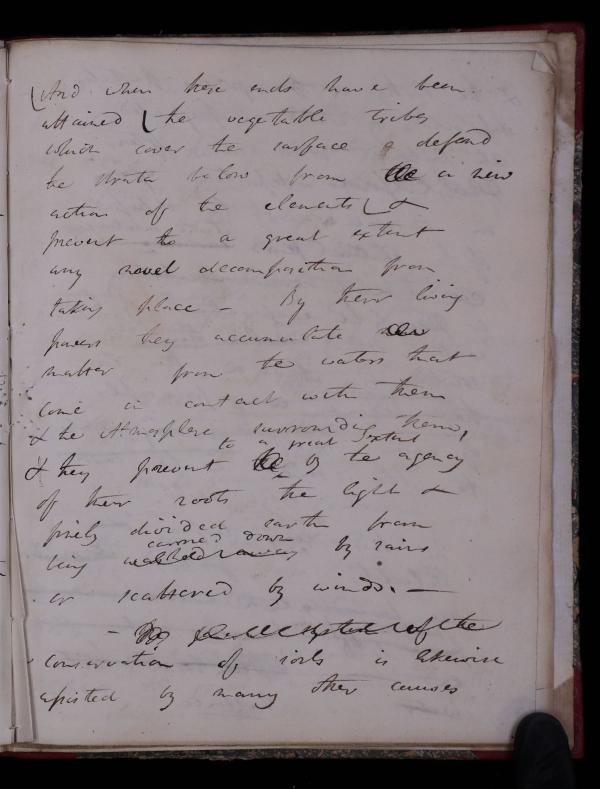 And when these ends have been
attained the vegetable tribes
which cover the surface & defend
the strata below from a new
action of the elements &
prevent to a great extent
any novel decomposition from
taking place – By their living
powers they accumulate new
matter from the waters that
come in contact with them
& the Atmosphere surrounding them,
to a great extent
& they prevent by the agency
of their roots the light &
finely divided earth from
carried down
being washed away by rains
or scattered by winds. —
– The of the
conservation of soils is likewise
assisted by many other causes